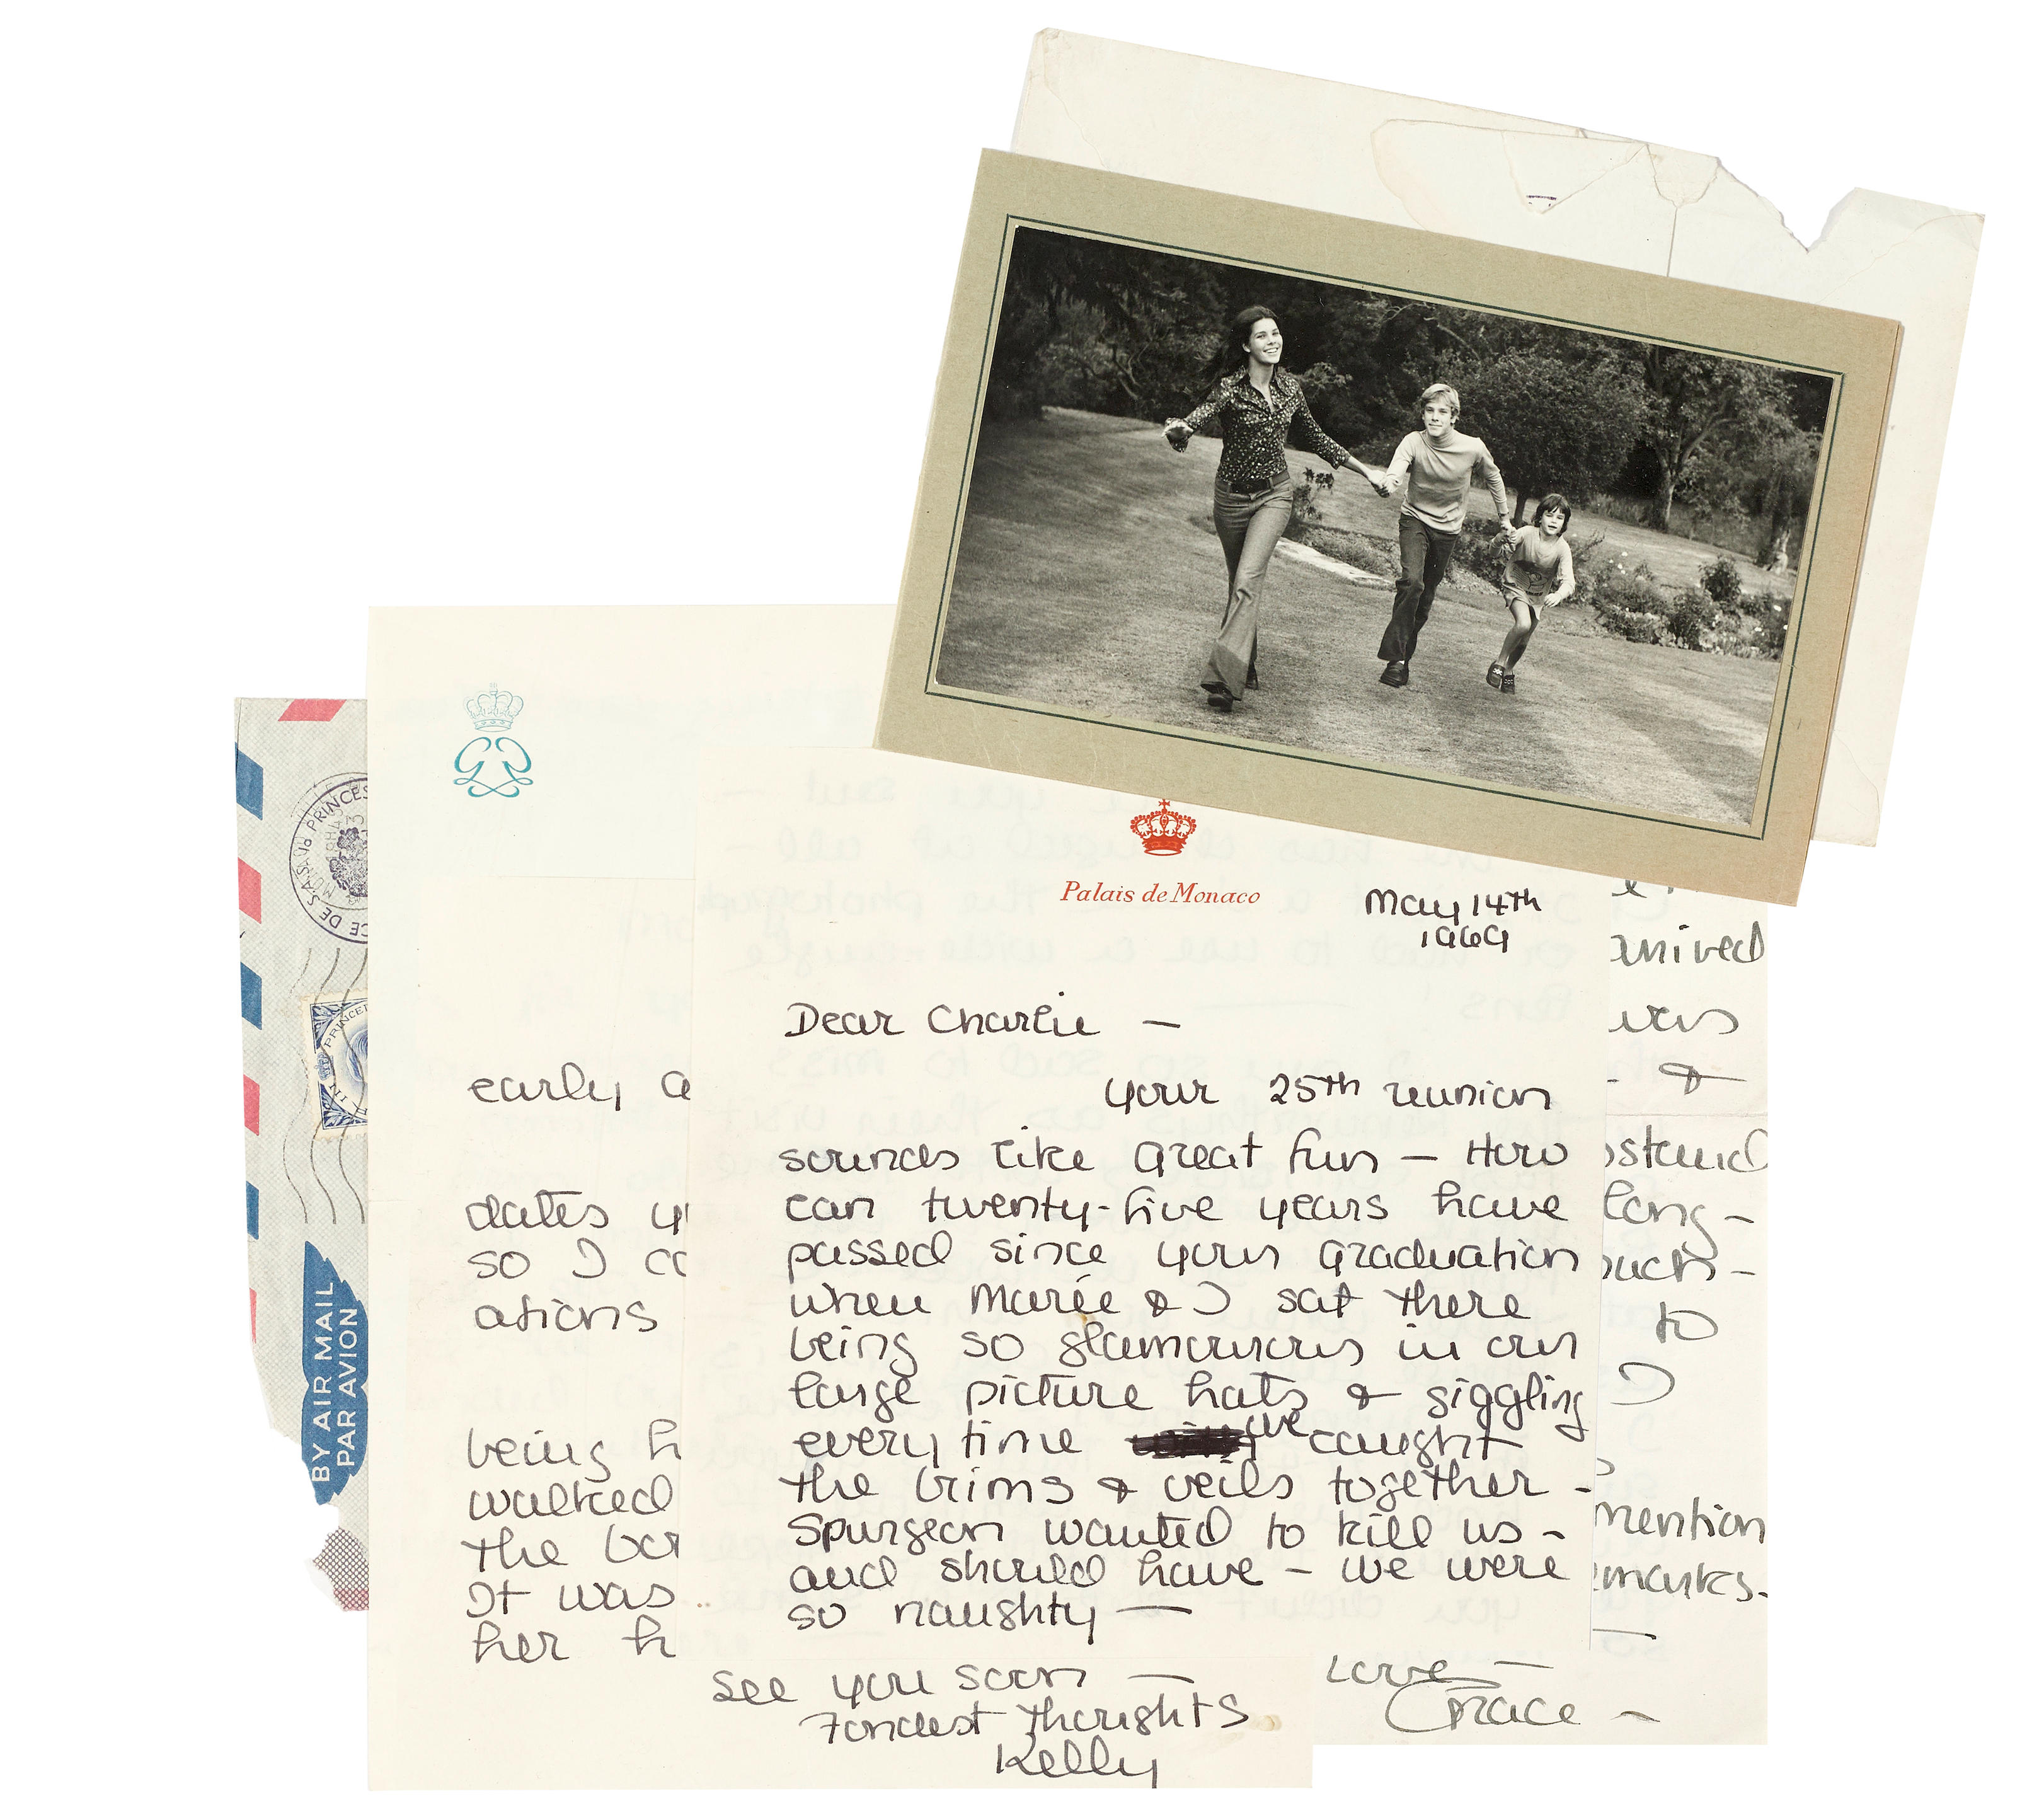 Palais de Monaco
May 14th
1969
Dear Charlie —
your 25th reunion
sounds like great fun — How
can twenty-five years have
passed since your graduation
when Marée & I sat there
being so glamourous in our
large picture hats & giggling
every time we caught
the brims & veils together -
Spurgeon wanted to kill us -
and should have - we were
so naughty —
early a
dates y
so I co
ations
being h
walked
the bar
It was
her h
See you soon —
Fondest thoughts
Kelly
arrived
vers
- &
stand
long -
to
I
mention
marks.
Love —
Grace ~
BY AIR MAIL
PAR AVION
CE DE S.A.S. LA PRINCES
PRINCE